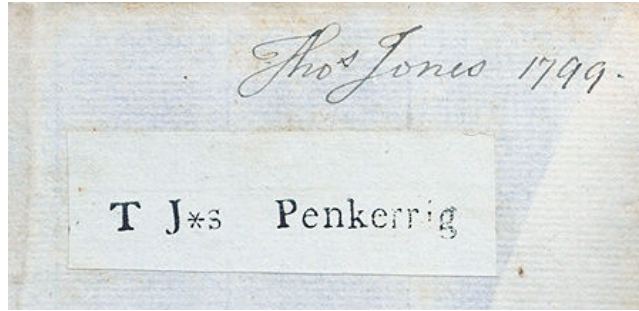 Thos Jones 1799.
T J*s Penkerrig